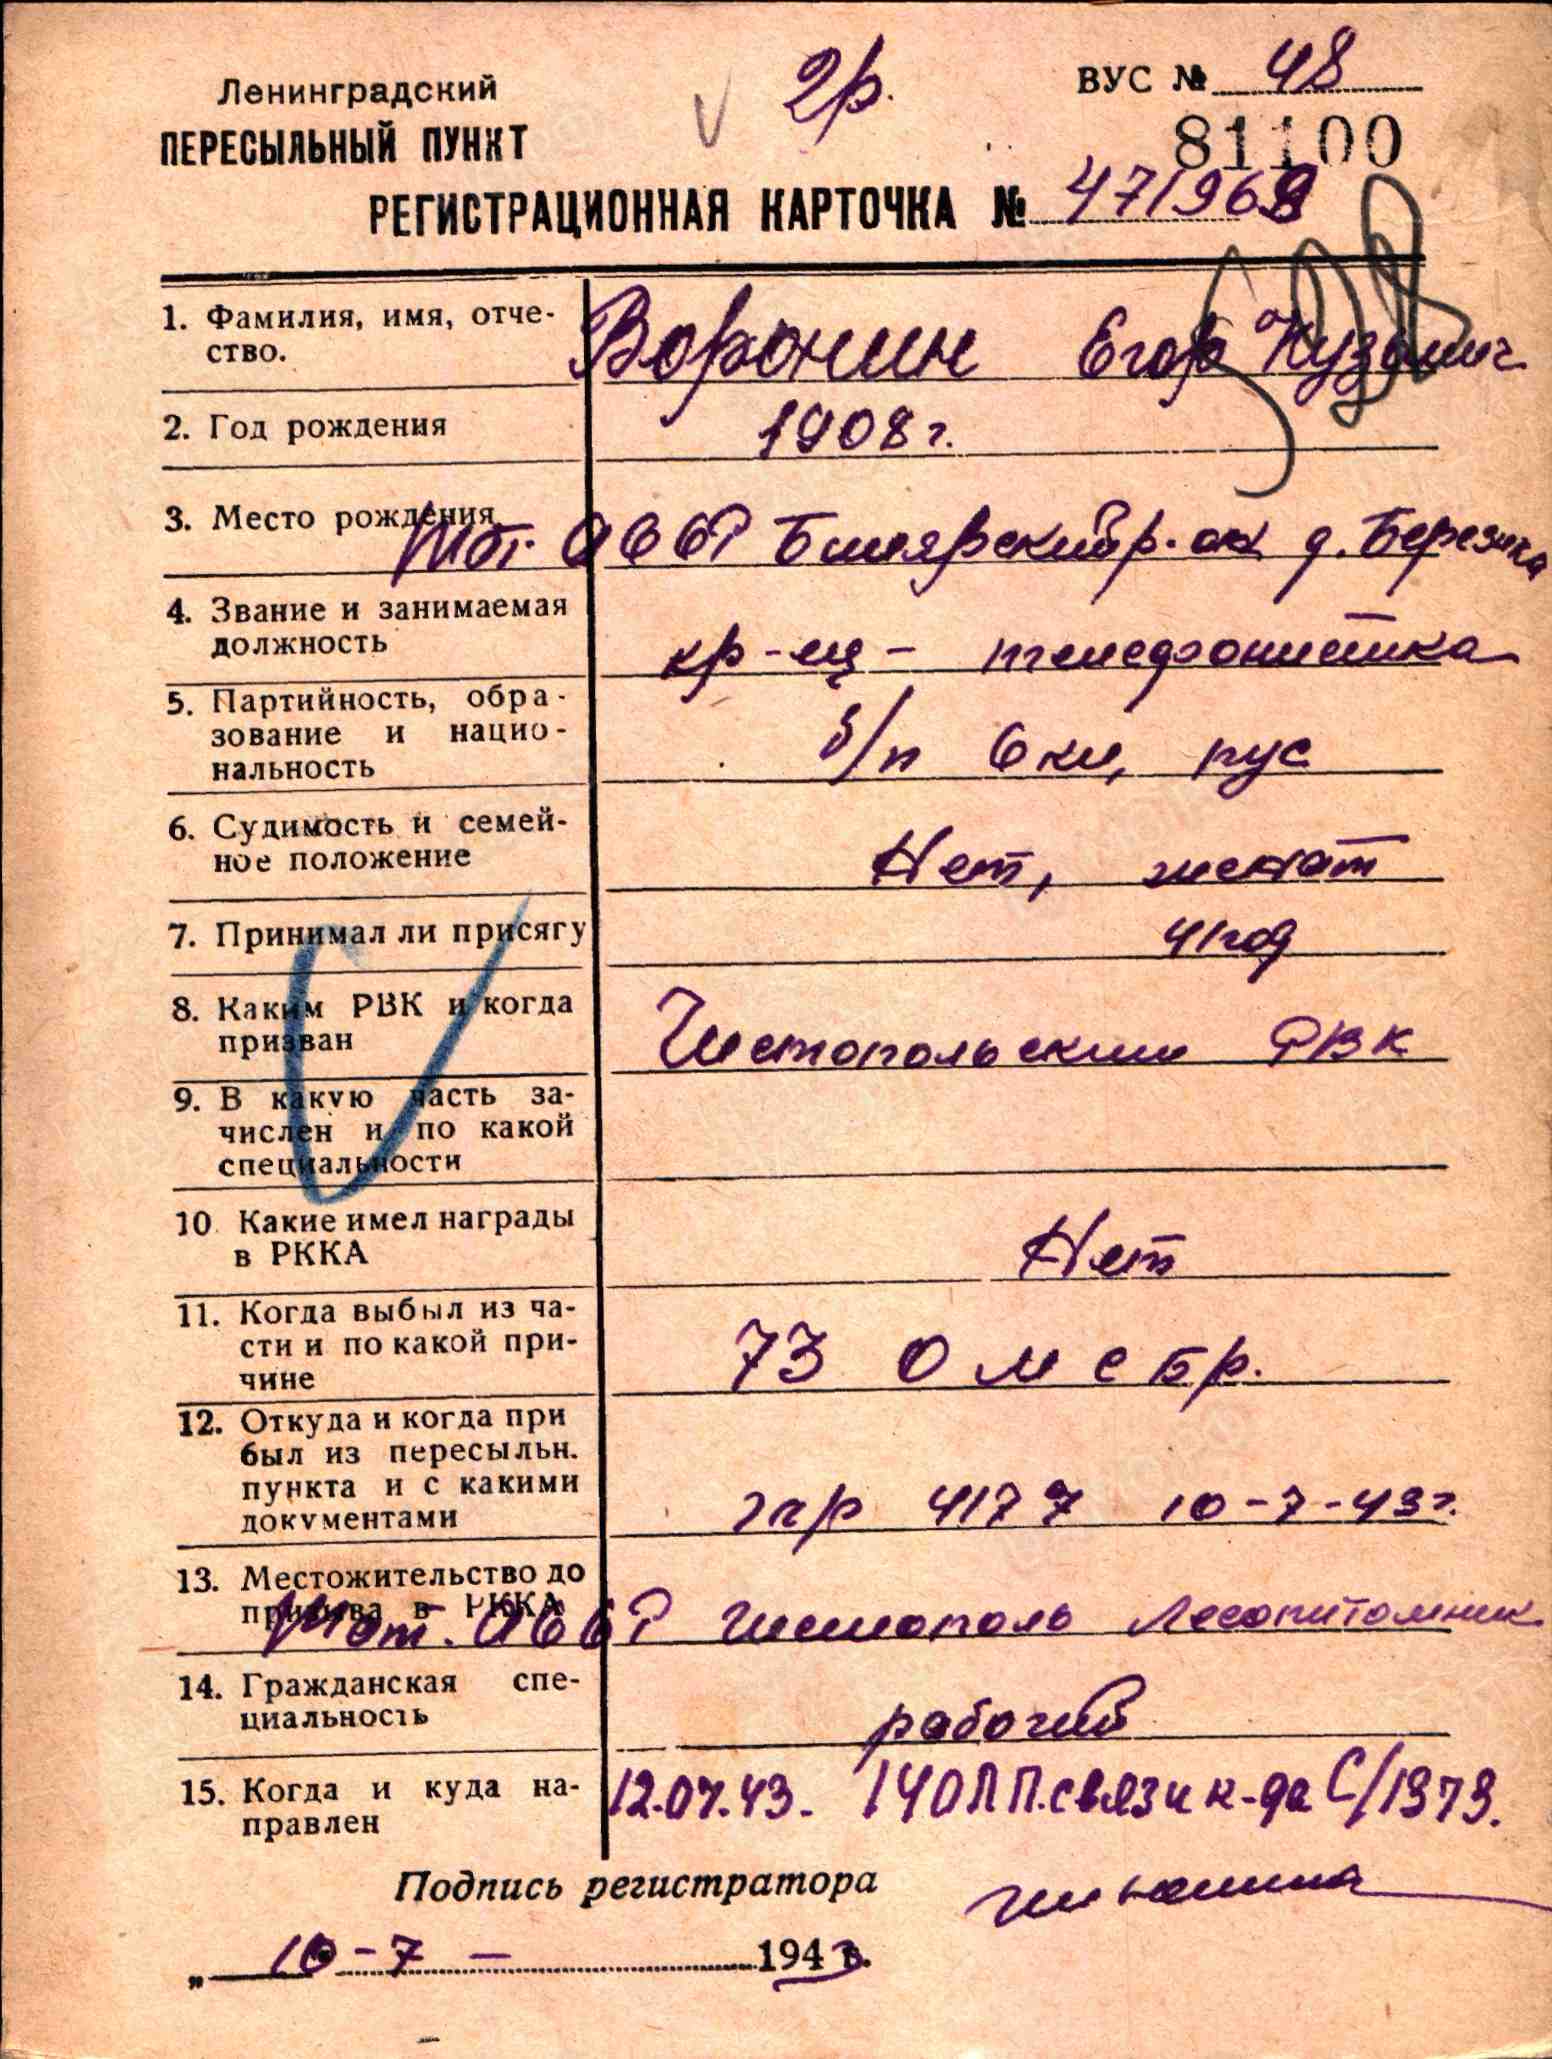 Ленинградский
ПЕРЕСЫЛЬНЫЙ ПУНКТ
2р.
ВУС № 48
81100
РЕГИСТРАЦИОННАЯ КАРТОЧКА № 47/968
1. Фамилия, имя, отче-
ство.
Воронин Егор Кузьмич
2. Год рождения
1908 г.
3. Место рождения
Тат. АССР Билярский р-он д. Березика
4. Звание и занимаемая
должность
кр-ец - телефонистика
5. Партийность, обра-
зование и нацио-
нальность
б/п 6 кл, рус
6. Судимость и семей-
ное положение
Нет, женат
7. Принимал ли присягу
41 год
8. Каким РВК и когда
призван
Чистопольский РВК
9. В какую часть за-
числен и по какой
специальности
10 Какие имел награды
в РККА
Нет
11. Когда выбыл из ча-
сти и по какой при-
чине
73 О м с бр.
12. Откуда и когда при
был из пересыльн.
пункта и с какими
документами
4177 10-7-43 г.
13. Местожительство до
призыва в РККА
Тат. АССР Чистополь Лесопитомник
14. Гражданская спе-
циальность
рабочий
15. Когда и куда на-
правлен
12.07.43. 140 ЛП.связи к-да С/1979.
Подпись регистратора
„ 10 - 7 - 1943 г.